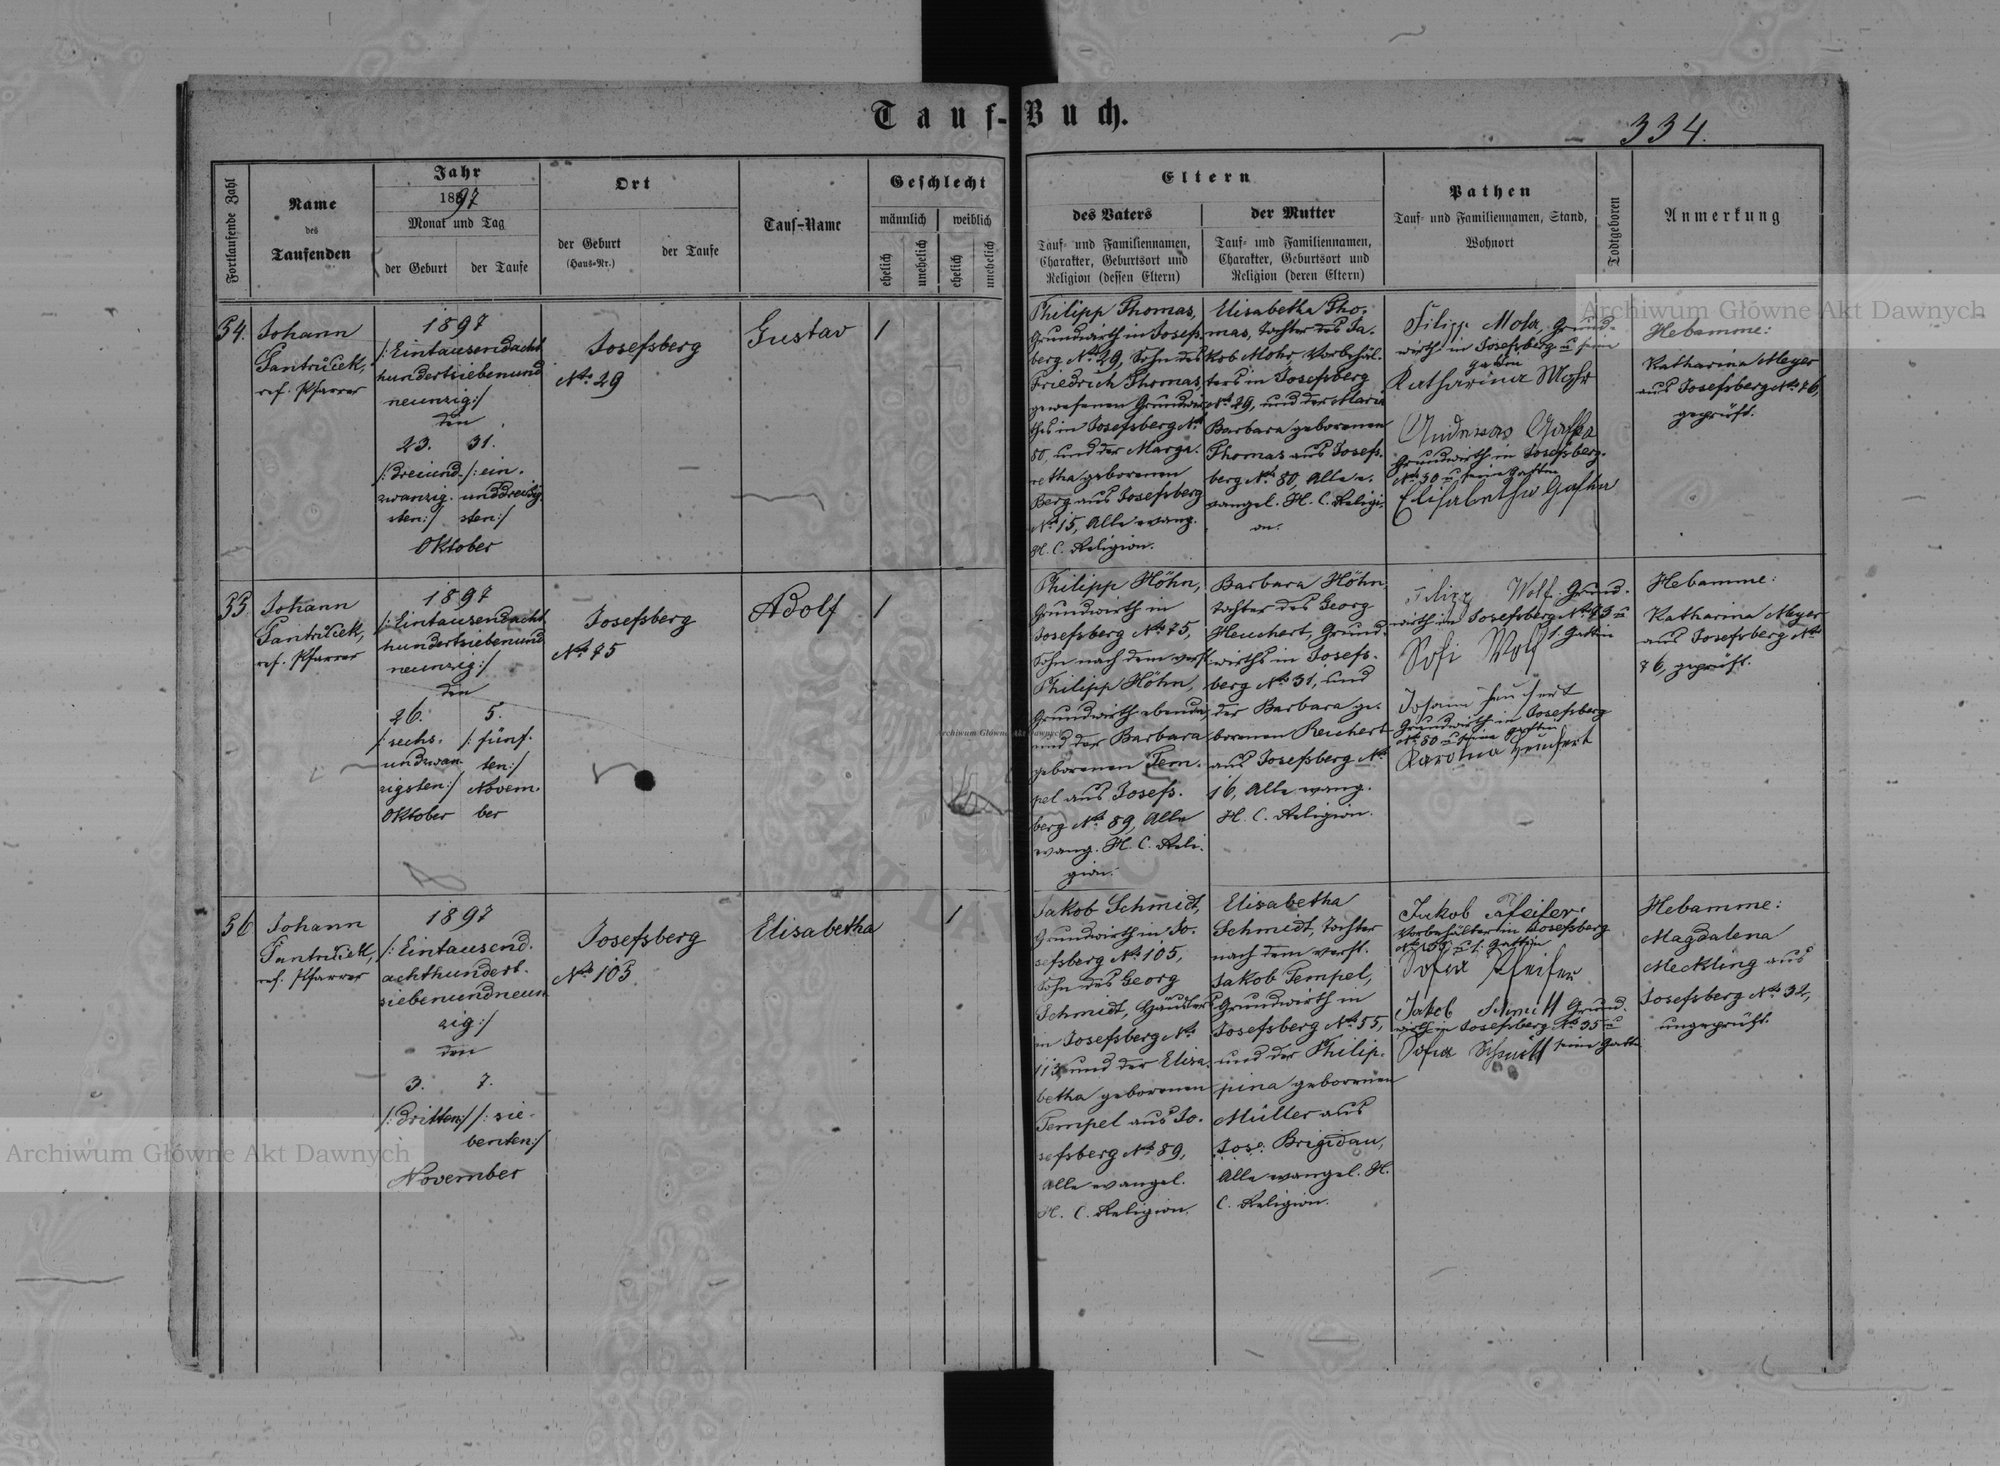 Tauf-Buch.
334.
Fortlaufende Zahl
Name
des
Taufenden
Jahr
1897
Monat und Tag
der Geburt
der Taufe
Ort
der Geburt
(Haus-Nr.)
der Taufe
Tauf-Name
Geschlecht
männlich
weiblich
ehelich
unehelich
ehelich
unehelich
Eltern
des Vaters
Tauf- und Familiennamen,
Charakter, Geburtsort und
Religion (dessen Eltern)
der Mutter
Tauf- und Familiennamen,
Charakter, Geburtsort und
Religion (deren Eltern)
Pathen
Tauf- und Familiennamen, Stand,
Wohnort
Todtgeboren
Anmerkung
54.
Johann
Fantruček,
ref. Pfarrer
1897
/: Eintausendacht
hundertsiebenund
neunzig :/
den
23. 31.
/: dreiund. /: ein.
zwanzig. unddreißig
sten :/ sten :/
Oktober
Josefsberg
No. 29
Gustav
1
Philipp Thomas,
Grundwirth in Josefs.
berg No. 29, Sohn des
Friedrich Thomas,
gewesenen Grundwir
thes in Josefsberg No.
80, und der Marga.
retha geborenen
Berg aus Josefsberg
No. 15, Alle evang.
H. C. Religion.
Elisabetha Tho.
mas, Tochter des Ja.
kob Mohr, Vorbehäl.
ters in Josefsberg
No. 29, und der Maria
Barbara geborenen
Thomas aus Josefs.
berg No. 80, Alle e.
vangel. H. C. Religi.
on.
Filipp Mohr, Grund-
wirth in Josefsberg u sein
Gattin
Katharina Mohr
Grundwirth in Josefsberg.
No. 30 u seine Gattin
Elisabetha
Hebamme:
Katharina Meyer
aus Josefsberg No. 76,
geprüft.
55.
Johann
Fantruček,
ref. Pfarrer
1897
/: Eintausendacht
hundertsiebenund
neunzig :/
den
26. 5.
/: sechs. /: fünf.
undzwan. ten :/
zigsten :/ Novem.
Oktober ber
Josefsberg
No. 75
Adolf
1
Philipp Höhn,
Grundwirth in
Josefsberg No. 75,
Sohn nach dem verst.
Philipp Höhn,
Grundwirth ebenda,
und der Barbara
geborenen Tem.
pel aus Josefs.
berg No. 89, Alle
evang. H. C. Reli.
gion.
Barbara Höhn
Tochter des Georg
Heuchert, Grund.
wirths in Josefs.
berg No. 31, und
der Barbara ge.
borenen Reichert
aus Josefsberg No.
16, Alle evang.
H. C. Religion.
Filipp Wolf. Grund.
wirth in Josefsberg No. 43 u
s. Gattin
Sofi Wolf
Johann Heuchert
Grundwirth in Josefsberg
No. 80 u seine Gattin
Karolina Heuchert
Hebamme:
Katharina Meyer
aus Josefsberg No.
76, geprüft.
56
Johann
Fantruček,
ref. Pfarrer
1897
/: Eintausend.
achthundert.
siebenundneun
zig :/
den
3. 7.
/: dritten :/ /: sie.
benten :/
November
Josefsberg
No. 105
Elisabetha
1
Jakob Schmidt,
Grundwirth in Jo.
sefsberg No. 105,
Sohn des Georg
Schmidt, Häuslers
in Josefsberg No.
113, und der Elisa.
betha geborenen
Tempel aus Jo.
sefsberg No. 89,
Alle evangel.
H. C. Religion.
Elisabetha
Schmidt, Tochter
nach dem verst.
Jakob Tempel,
Grundwirth in
Josefsberg No. 55,
und der Philip.
pina geborenen
Müller aus
Jose. Brigidau,
Alle evangel. H.
C. Religion.
Jakob Pfeifer.
Vorbehälter in Josefsberg
No. 105 u s. Gattin
Sofia Pfeifer
Jakob Schmitt Grund.
wirth in Josefsberg No. 35 u
Sofia Schmitt seine Gattin
Hebamme:
Magdalena
Meckling aus
Josefsberg No. 32,
ungeprüft.
Archiwum Główne Akt Dawnych
Archiwum Główne Akt Dawnych
Archiwum Główne Akt Dawnych